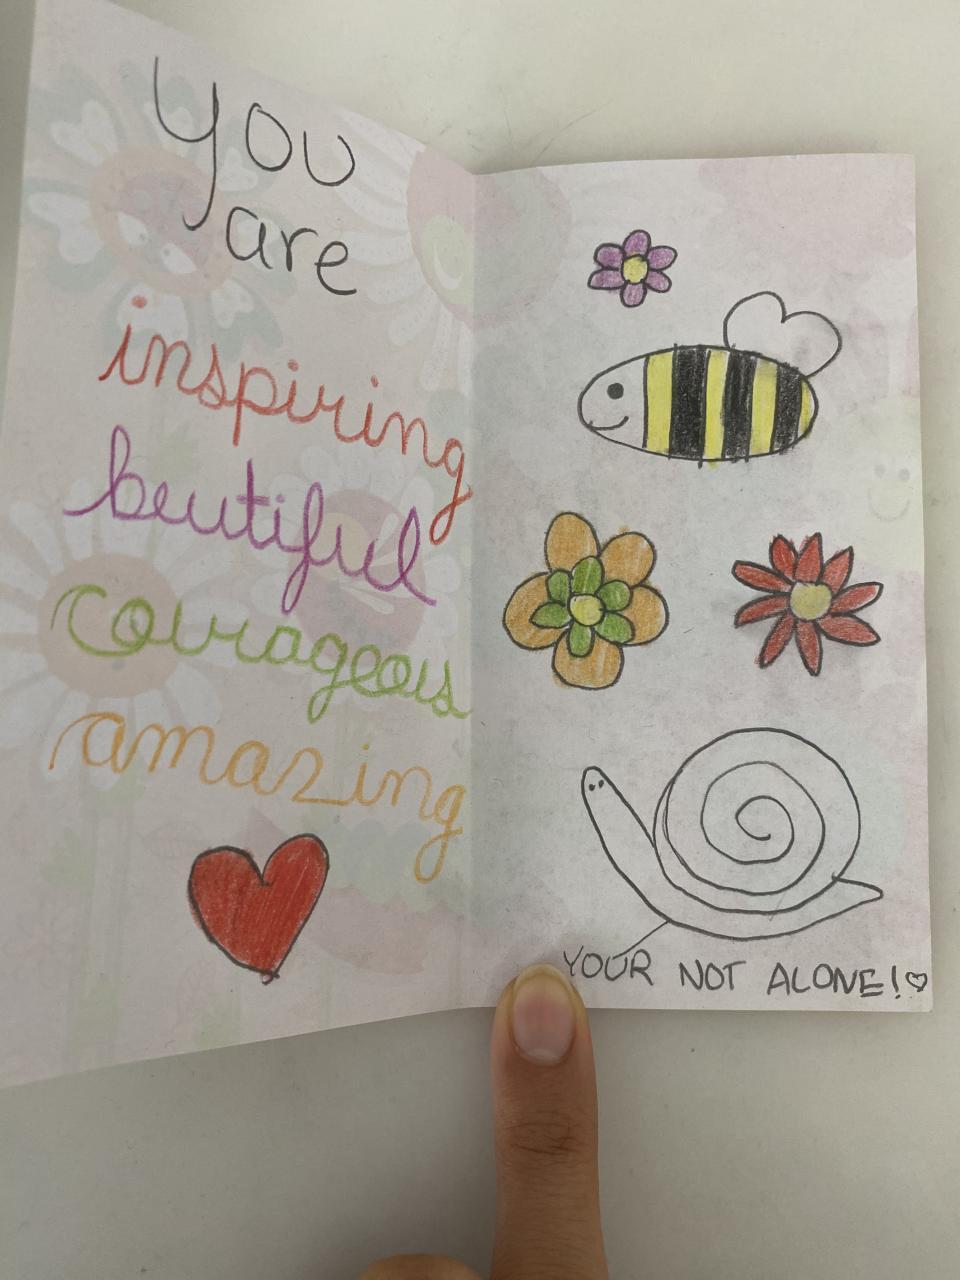 you
are
inspiring
beutiful
courageous
amazing
YOUR NOT ALONE!♡